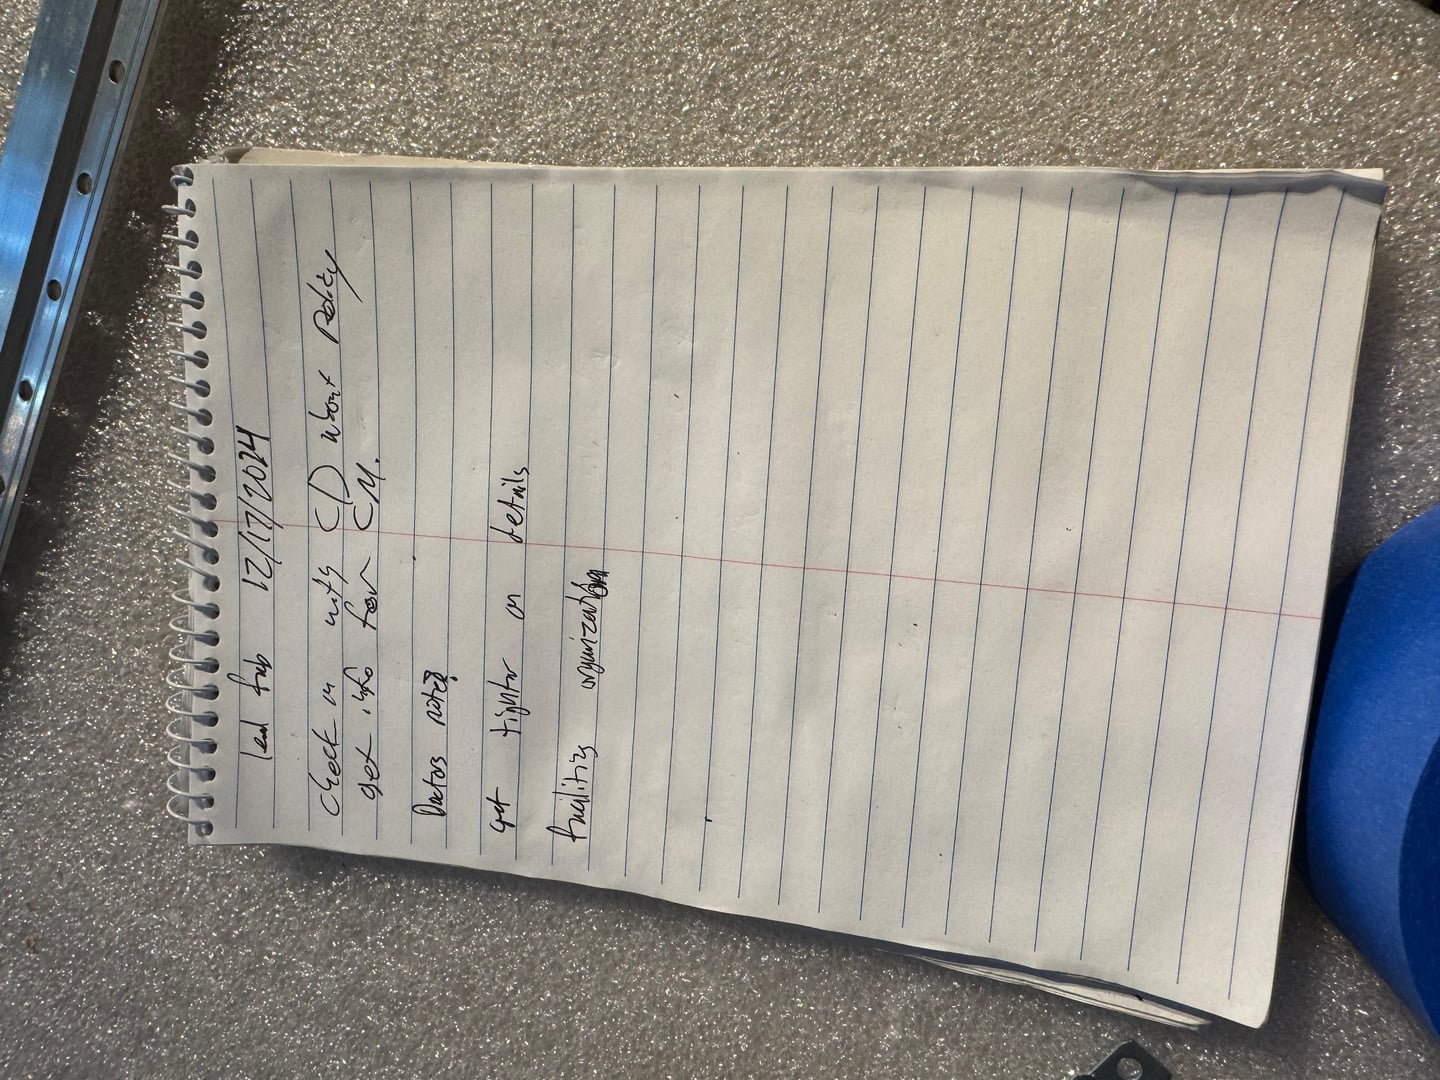 lead fab 12/17/2024
check in with CD about Policy
get info for CM.
Doctors note?
get tighter on details
facilities organization